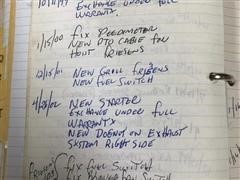 10/14/99 EXCHANGE UNDER FULL
WARRANTY.
1/15/00 FIX SPEEDOMETER
NEW PTO CABLE FOU
HOUT FRIESENS
12/15/01 NEW GRILL FRIESENS
NEW FUEL SWITCH
4/28/02 NEW STARTER
EXCHANGE UNDER FULL
WARRANTY
NEW DOENOT ON EXHAUST
SYSTEM RIGHT SIDE
FIX FUEL SWITCH
SWITCH